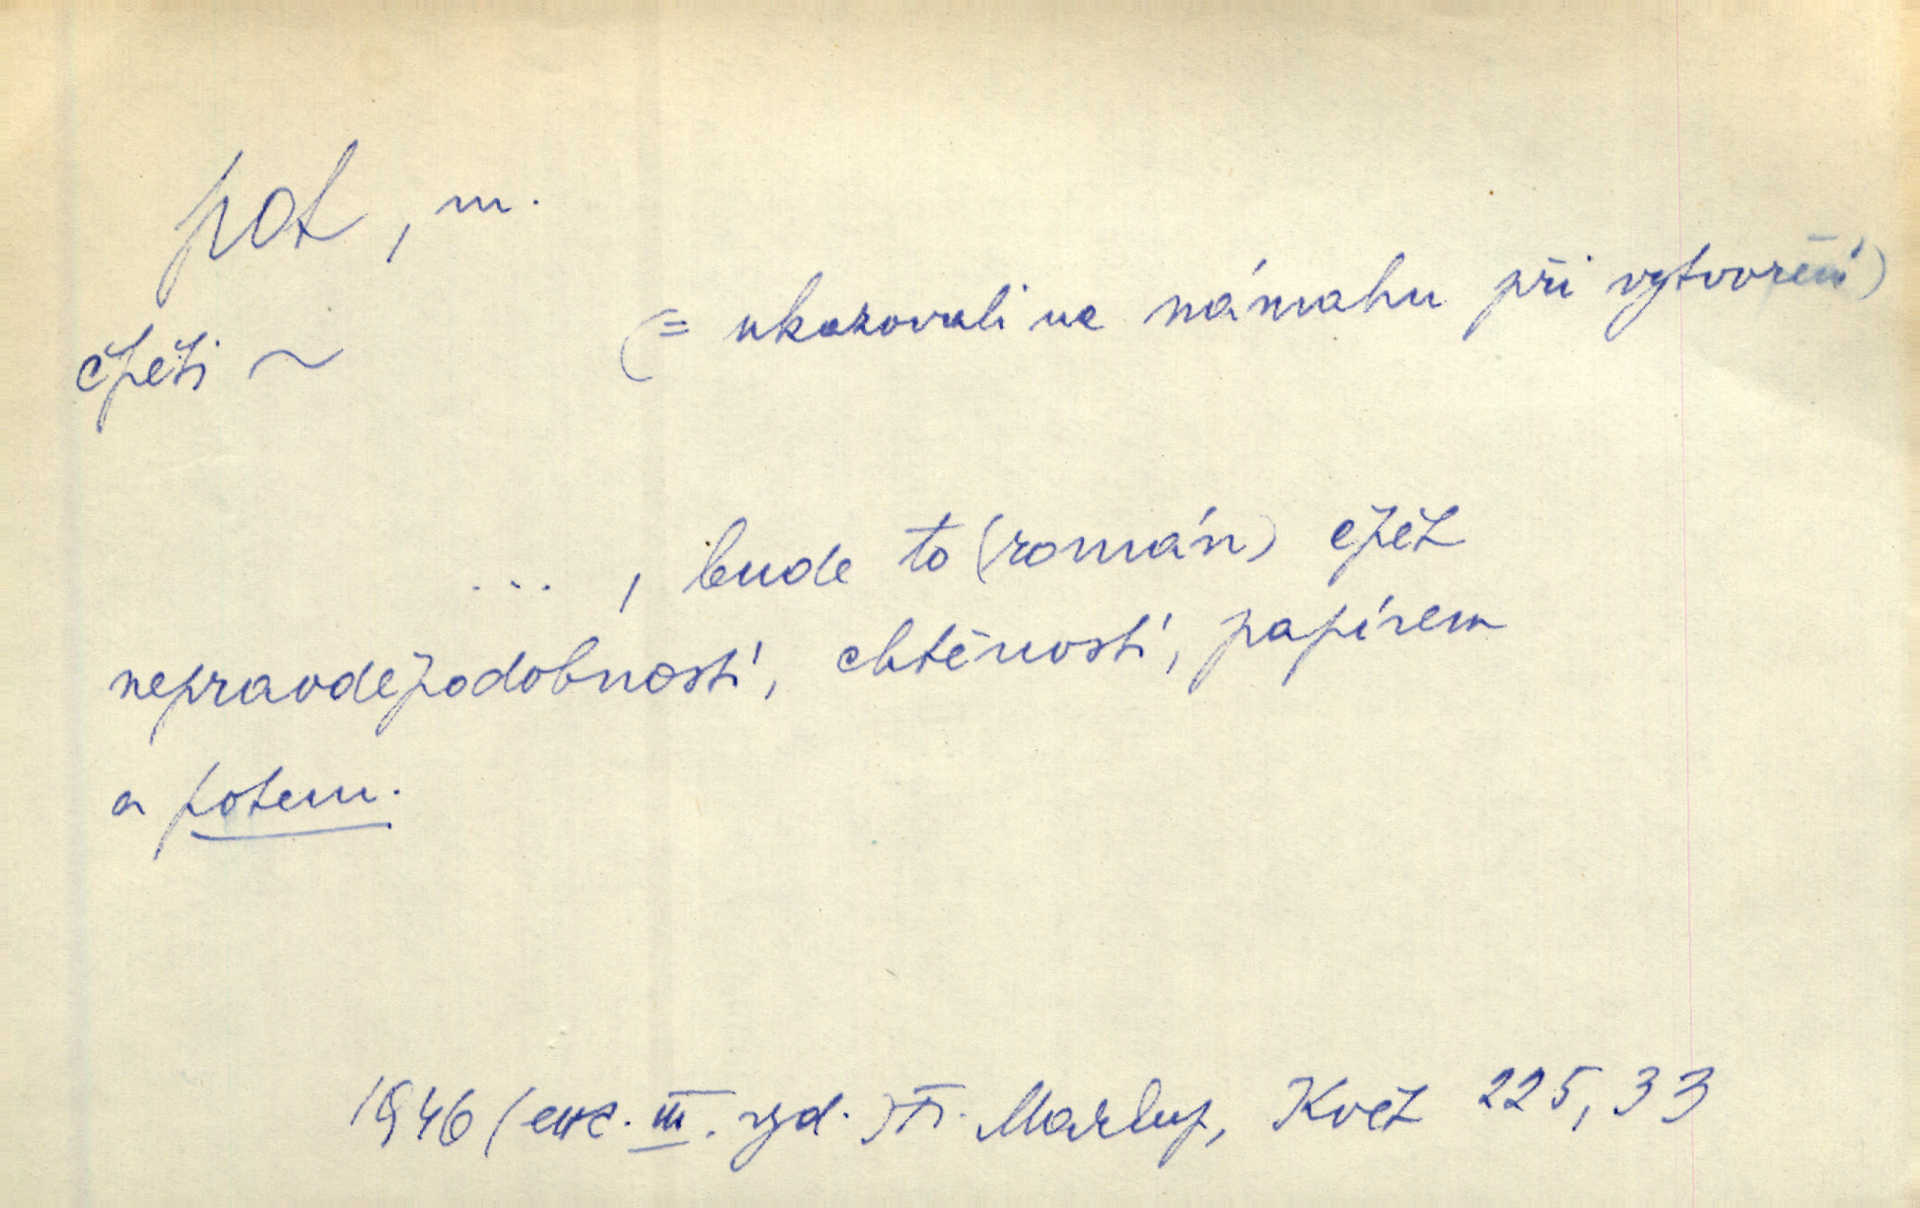 pot, m.
čpěti ~ (= ukazovati na námahu při vytvoření)
... , bude to (román) čpět
nepravděpodobností, chtěností, papírem
a potem.
1946 (exc. III. vyd.) Květ 225, 33